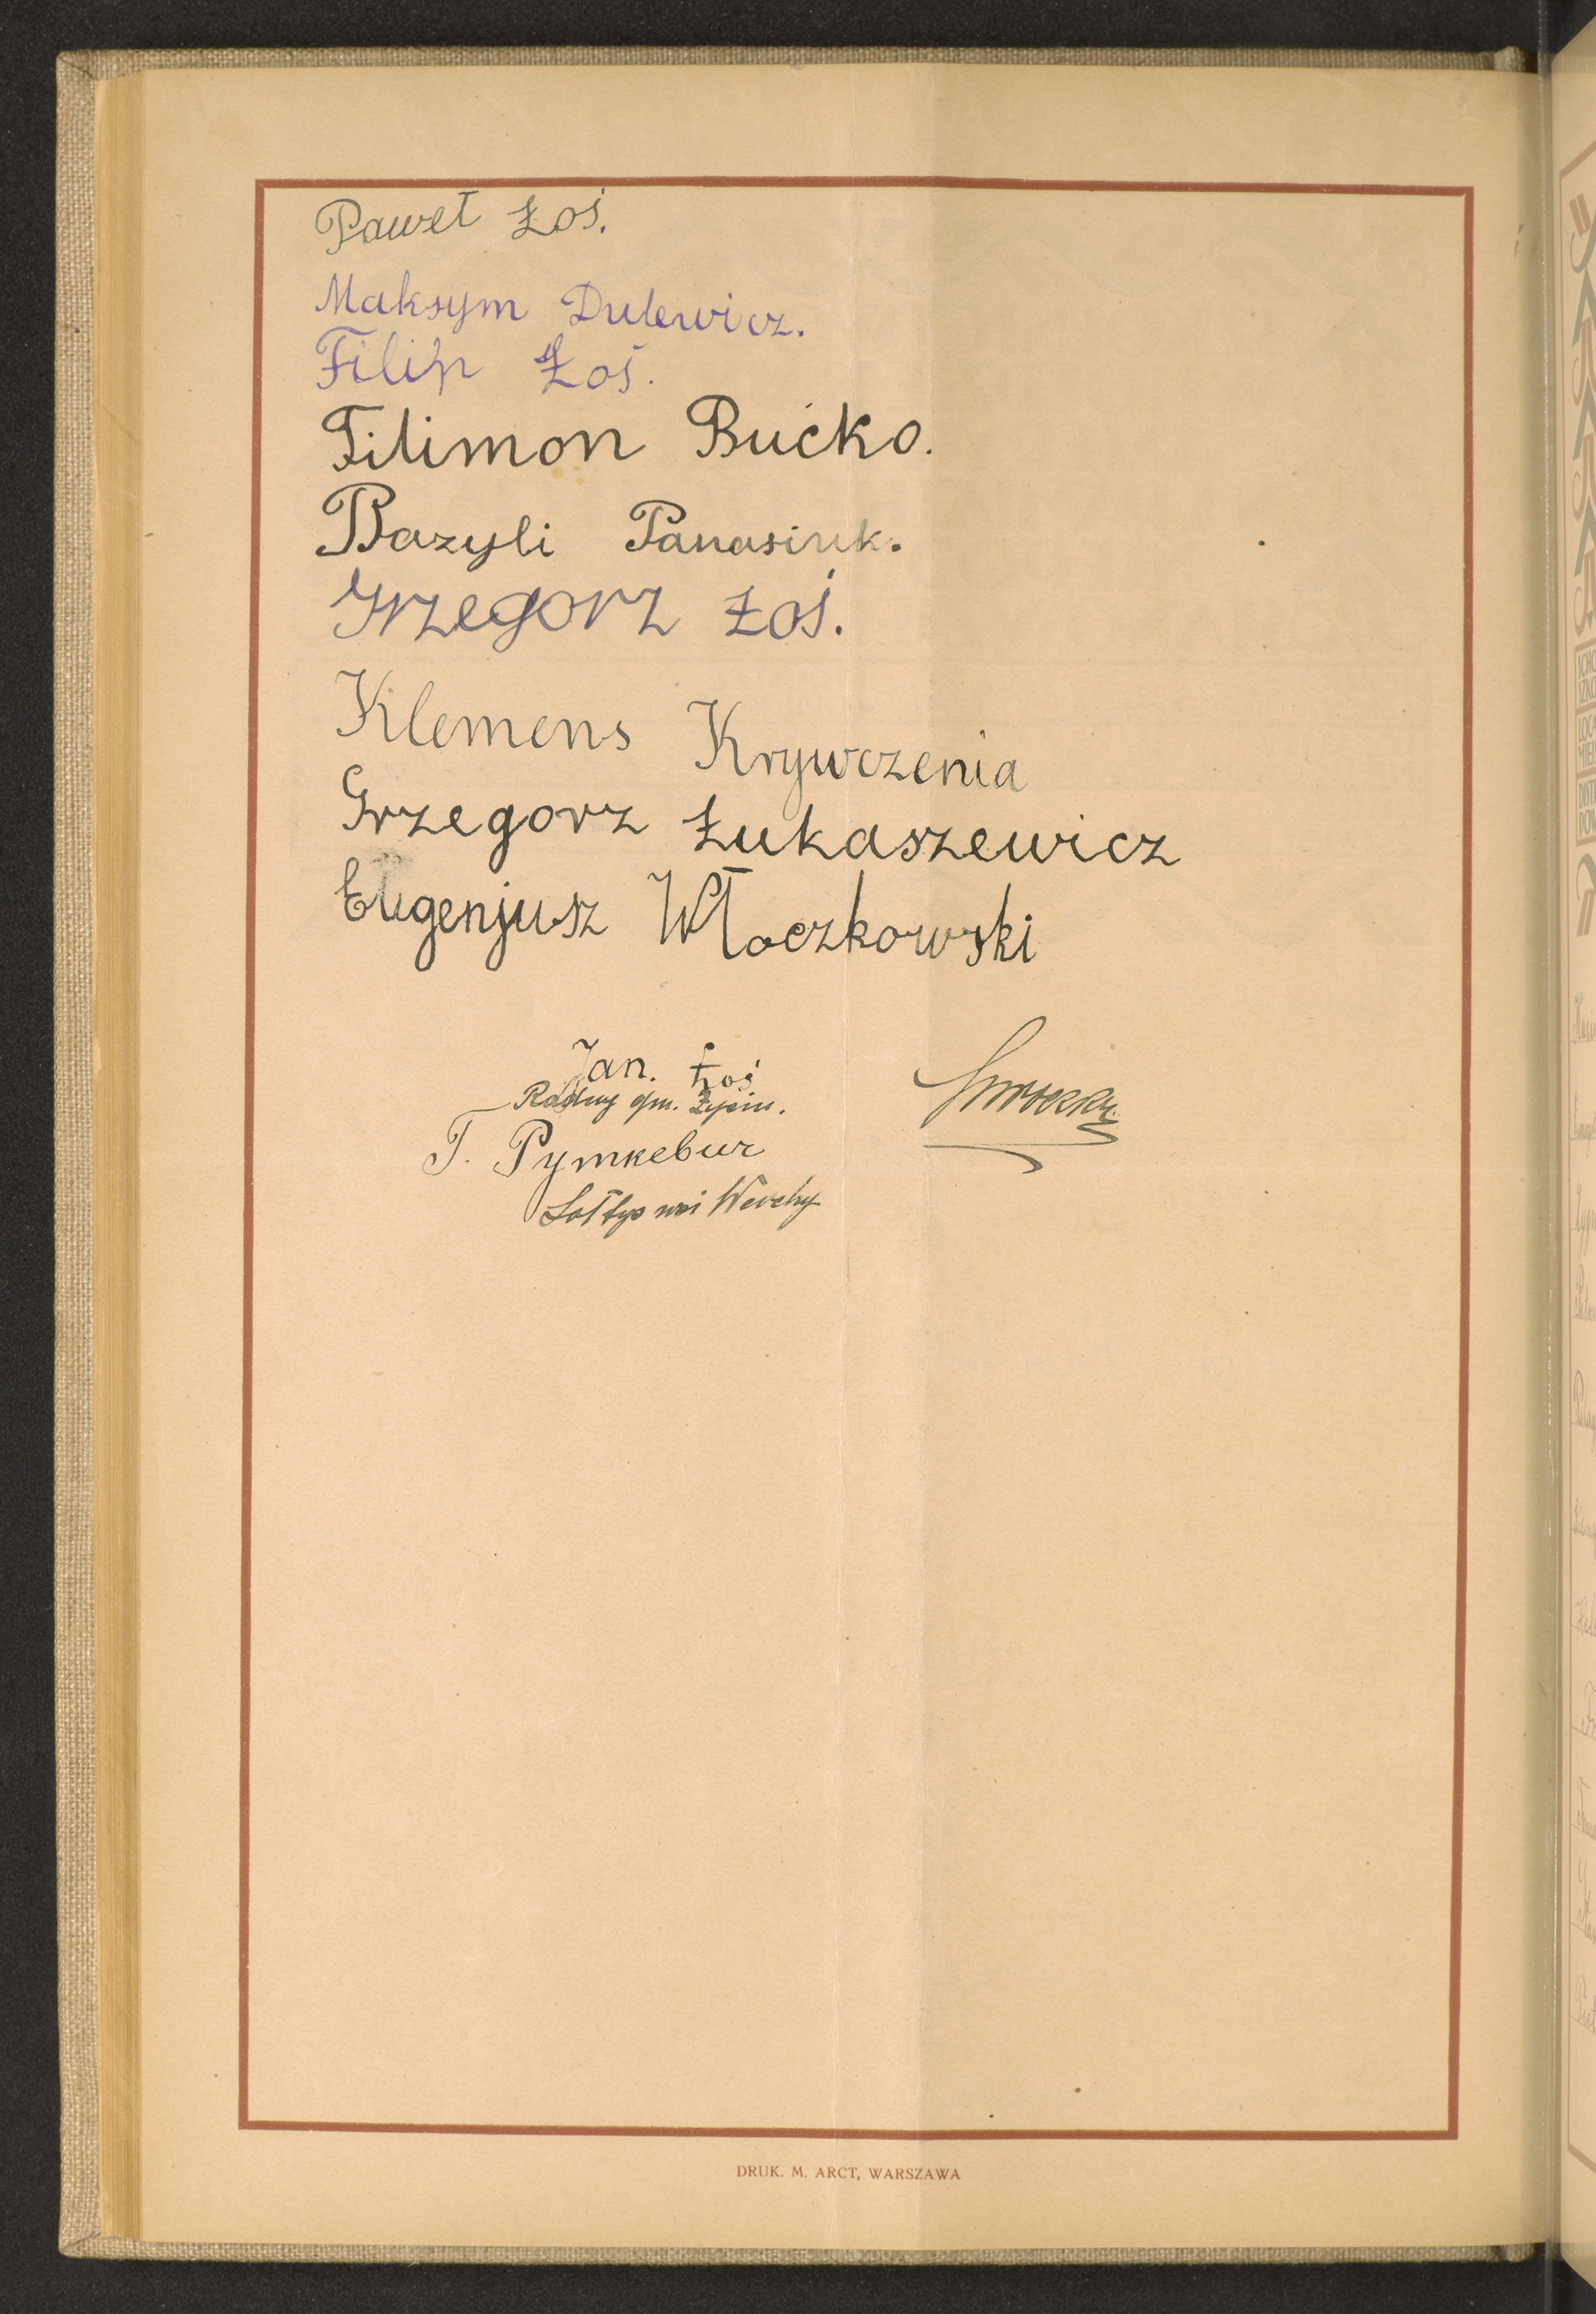 Paweł Łoś.
Maksym Dulewicz.
Filip Łoś.
Filimon Bućko.
Bazyli Panasiuk.
Grzegorz Łoś.
Klemens Krywczenia
Grzegorz Łukaszewicz
Eugenjusz Włoczkowski
Jan. Łoś
Radny gm.
T. Руткевич
Sołtys wsi Werchy
DRUK. M. ARCT, WARSZAWA